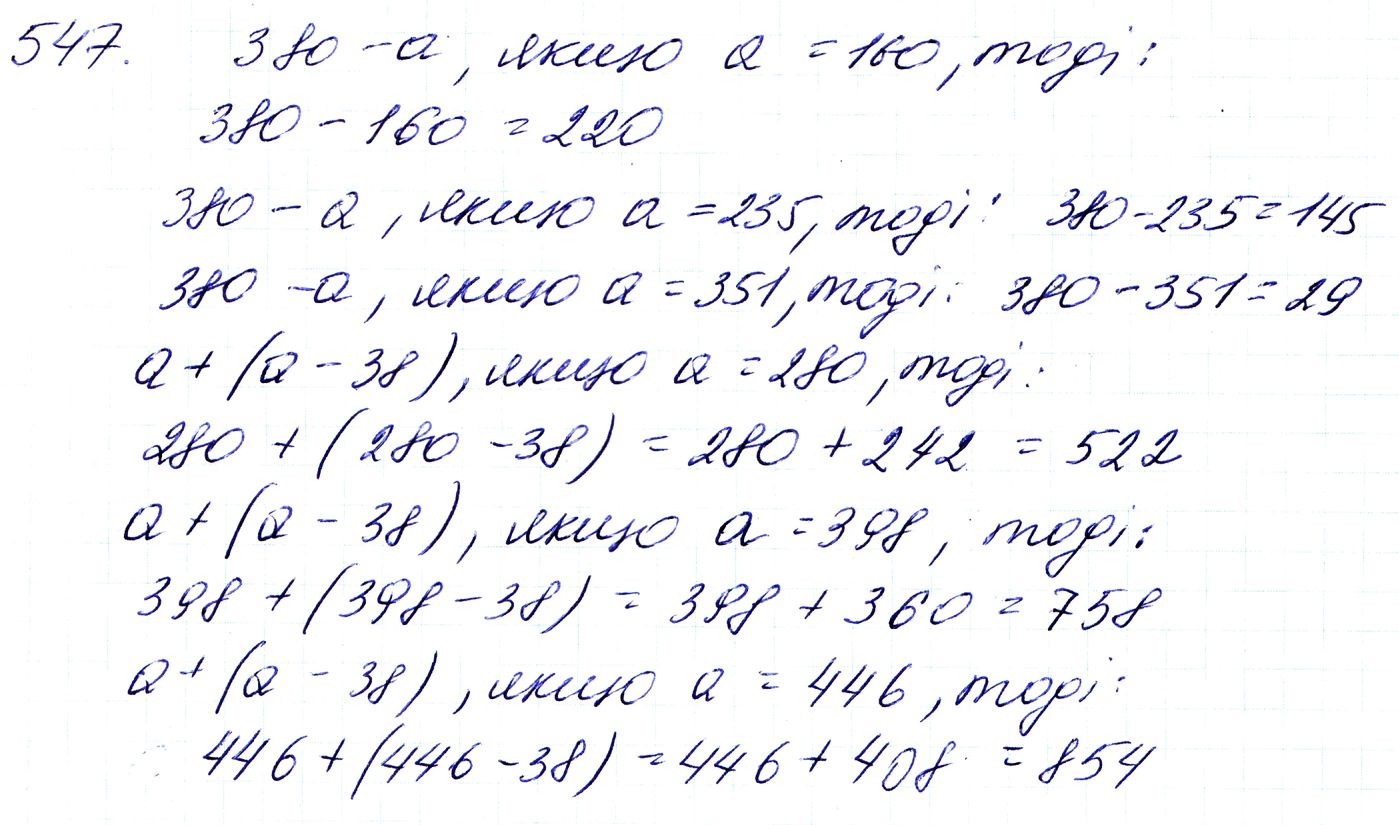 547. 380 - a, якщо a = 160, тоді:
380 - 160 = 220
380 - a, якщо a = 235, тоді: 380 - 235 = 145
380 - a, якщо a = 351, тоді: 380 - 351 = 29
a + (a - 38), якщо a = 280, тоді:
280 + (280 - 38) = 280 + 242 = 522
a + (a - 38), якщо a = 398, тоді:
398 + (398 - 38) = 398 + 360 = 758
a + (a - 38), якщо a = 446, тоді:
446 + (446 - 38) = 446 + 408 = 854